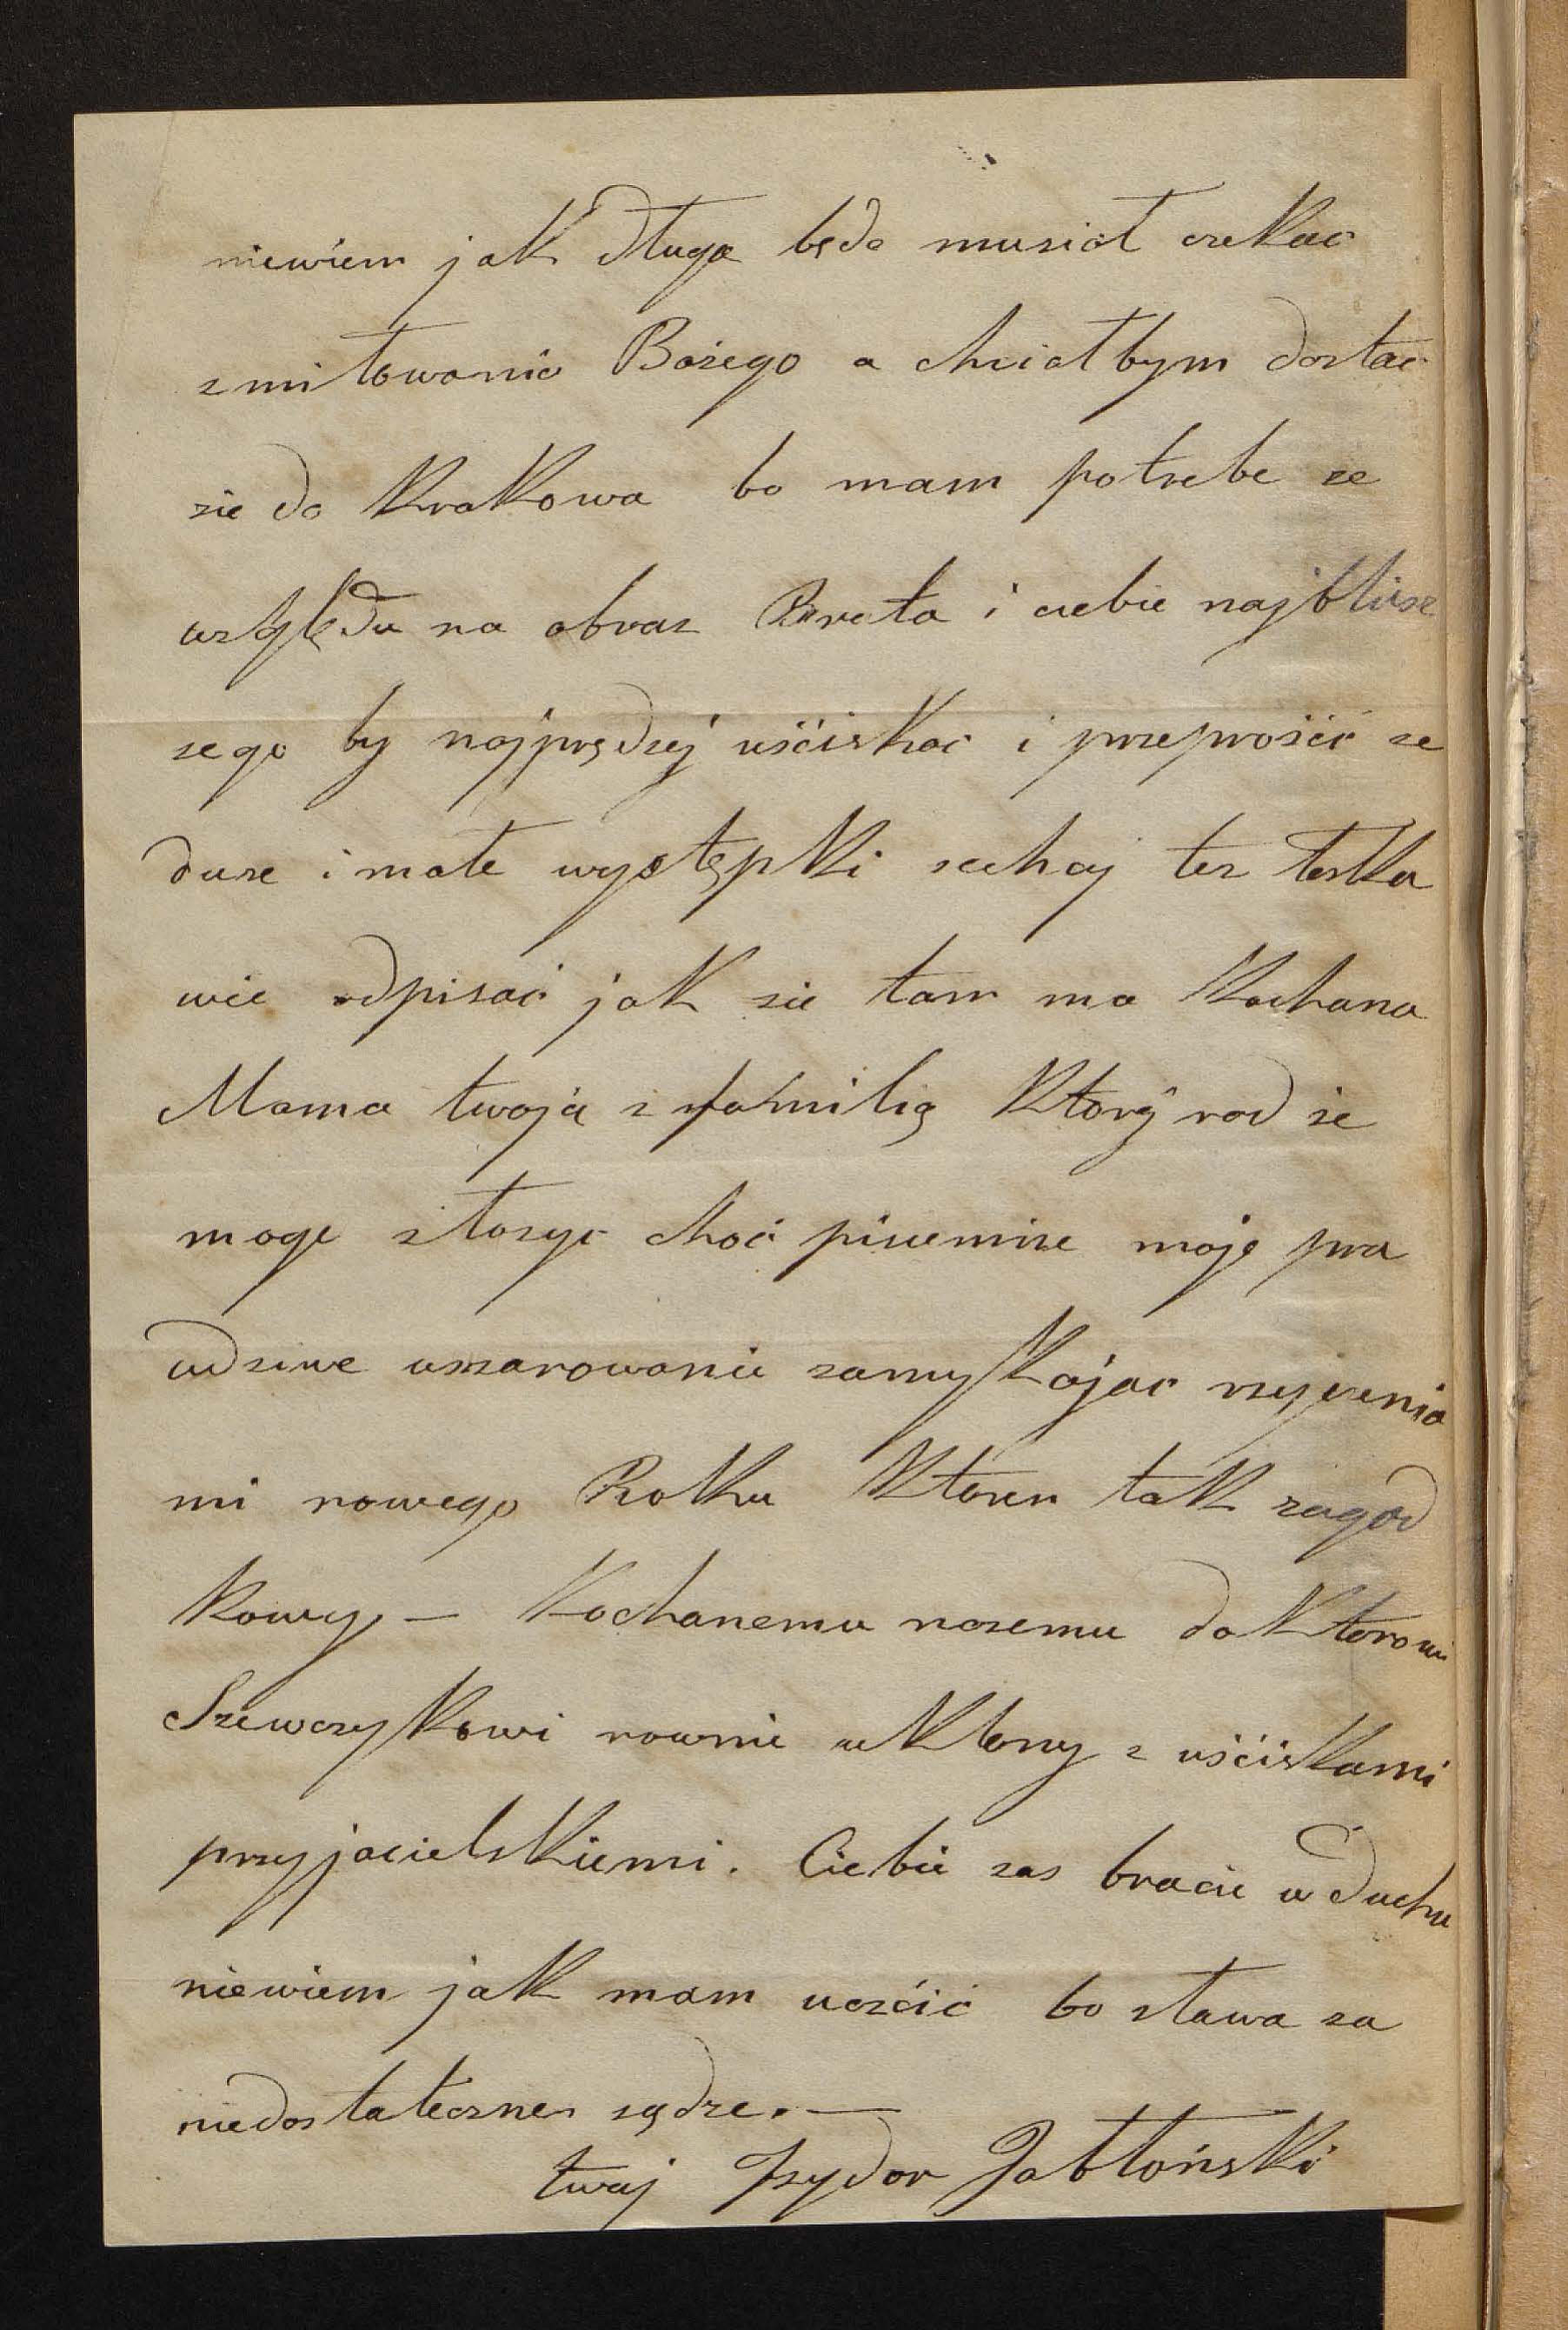 niewiem jak długo będe musiał czekać
zmiłowania Bożego a chciałbym dostać
sie do Krakowa bo mam potrzebe ze
względu na obraz Brata i ciebie najbliższ
szego by najprędzej uściskać i przeprosić ze
duże i małe występki zechaj tez łaska
wie odpisać jak sie tam ma Kochana
Mama twoja z familią Ktorÿ rad ze
moge złozyć choć pisemne moje pra
wdziwe uszanowanie zamykając rzyczenia
mi nowego Roku Ktoren tak zagad
kowy. — Kochanemu naszemu doktorowi
Szewczykowi rownie ukłony z uściskami
przyjacielskiemi. Ciebie zas bracie w duchu
niewiem jak mam uczcić bo słowa za
niedostateczne sądze. —
twoj Izydor Jabłoński